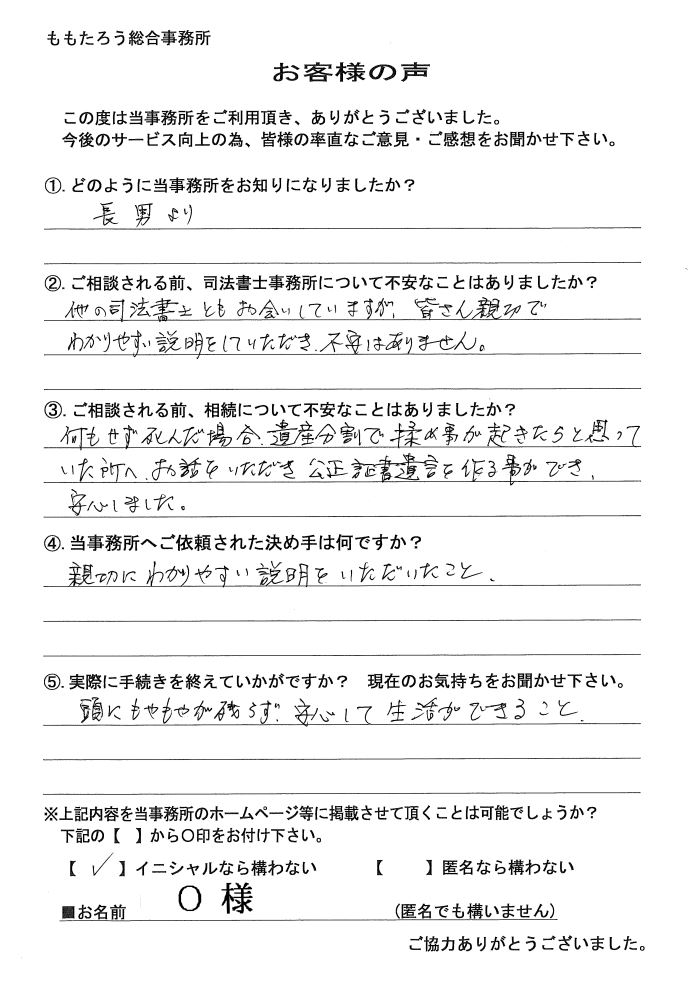 ももたろう総合事務所
お客様の声
この度は当事務所をご利用頂き、ありがとうございました。
今後のサービス向上の為、皆様の率直なご意見・ご感想をお聞かせ下さい。
①. どのように当事務所をお知りになりましたか？
長男より
②. ご相談される前、司法書士事務所について不安なことはありましたか？
他の司法書士ともお会いしていますが、皆さん親切で
わかりやすい説明をしていただき、不安はありません。
③. ご相談される前、相続について不安なことはありましたか？
何もせず死んだ場合、遺産分割で揉め事が起きたらと思って
いた所へ、お話をいただき公正証書遺言を作る事ができ、
安心しました。
④. 当事務所へご依頼された決め手は何ですか？
親切にわかりやすい説明をいただいたこと、
⑤. 実際に手続きを終えていかがですか？　現在のお気持ちをお聞かせ下さい。
頭にもやもやが残らず、安心して生活ができること、
※上記内容を当事務所のホームページ等に掲載させて頂くことは可能でしょうか？
下記の【　】から〇印をお付け下さい。
【 ✓ 】イニシャルなら構わない　【　】匿名なら構わない
■お名前　O 様　(匿名でも構いません)
ご協力ありがとうございました。